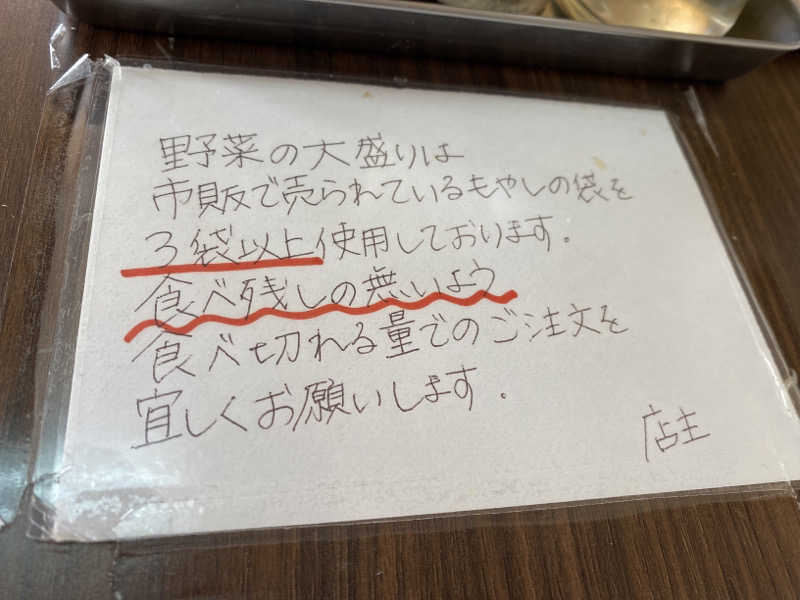 野菜の大盛りは
市販で売られているもやしの袋を
3袋以上使用しております.
食べ残しの無いよう
食べ切れる量でのご注文を
宜しくお願いします.
店主